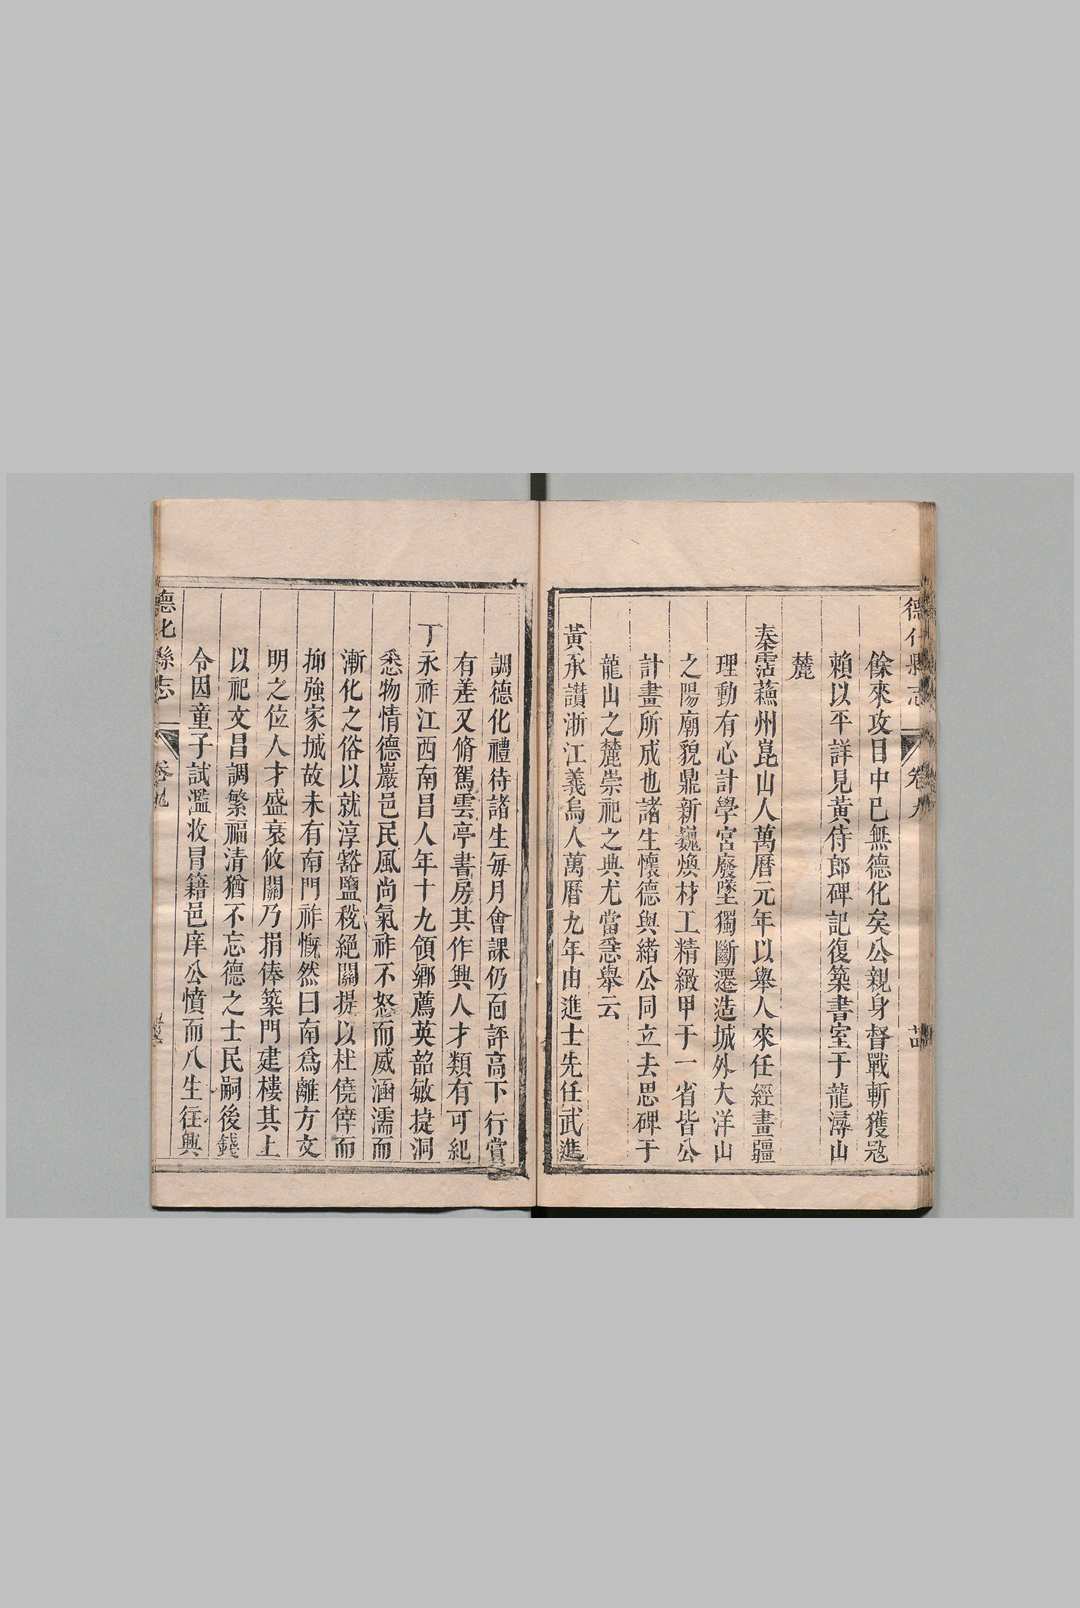 德化縣志 卷九
餘來攻目中已無德化矣公親身督戰斬獲寇
賴以平詳見黃侍郎碑記復築書室于龍潯山
麓
秦霑蘓州崑山人萬曆元年以舉人來任經畫疆
理動有心計學宮廢墜獨斷遷造城外大洋山
之陽廟貌鼎新巍煥材工精緻甲于一省皆公
計畫所成也諸生懷德與緒公同立去思碑于
龍山之麓崇祀之典尤當亟舉云
黃承讃浙江義烏人萬曆九年由進士先任武進
調德化禮待諸生每月會課仍面評高下行賞
有差又脩駕雲亭書房其作興人才類有可紀
丁永祚江西南昌人年十九領鄉薦英韶敏捷洞
悉物情德巖邑民風尚氣祚不怒而威涵濡而
漸化之俗以就淳豁鹽稅絕關提以杜僥倖而
抑強家城故未有南門祚慨然曰南爲離方文
明之位人才盛衰攸關乃捐俸築門建樓其上
以祀文昌調繁福清猶不忘德之士民嗣後錢
令因童子試濫收冒籍邑庠公憤而八生往輿
德化縣志 卷九